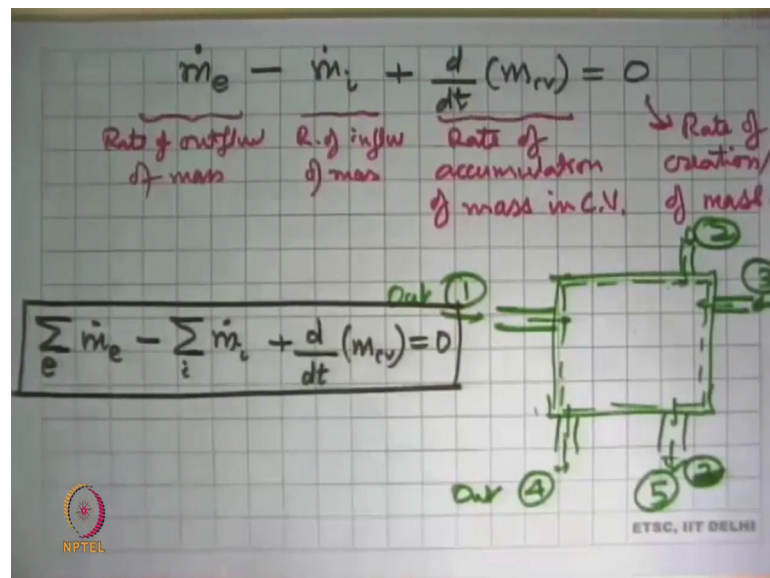 ṁe − ṁi + d/dt (mcv) = 0
Rate of outflow of mass
R. of inflow of mass
Rate of accumulation of mass in C.V.
Rate of creation/ of mass
Out ①
②
③
∑e ṁe − ∑i ṁi + d/dt (mcv) = 0
Out ④
⑤
NPTEL
ETSC, IIT DELHI